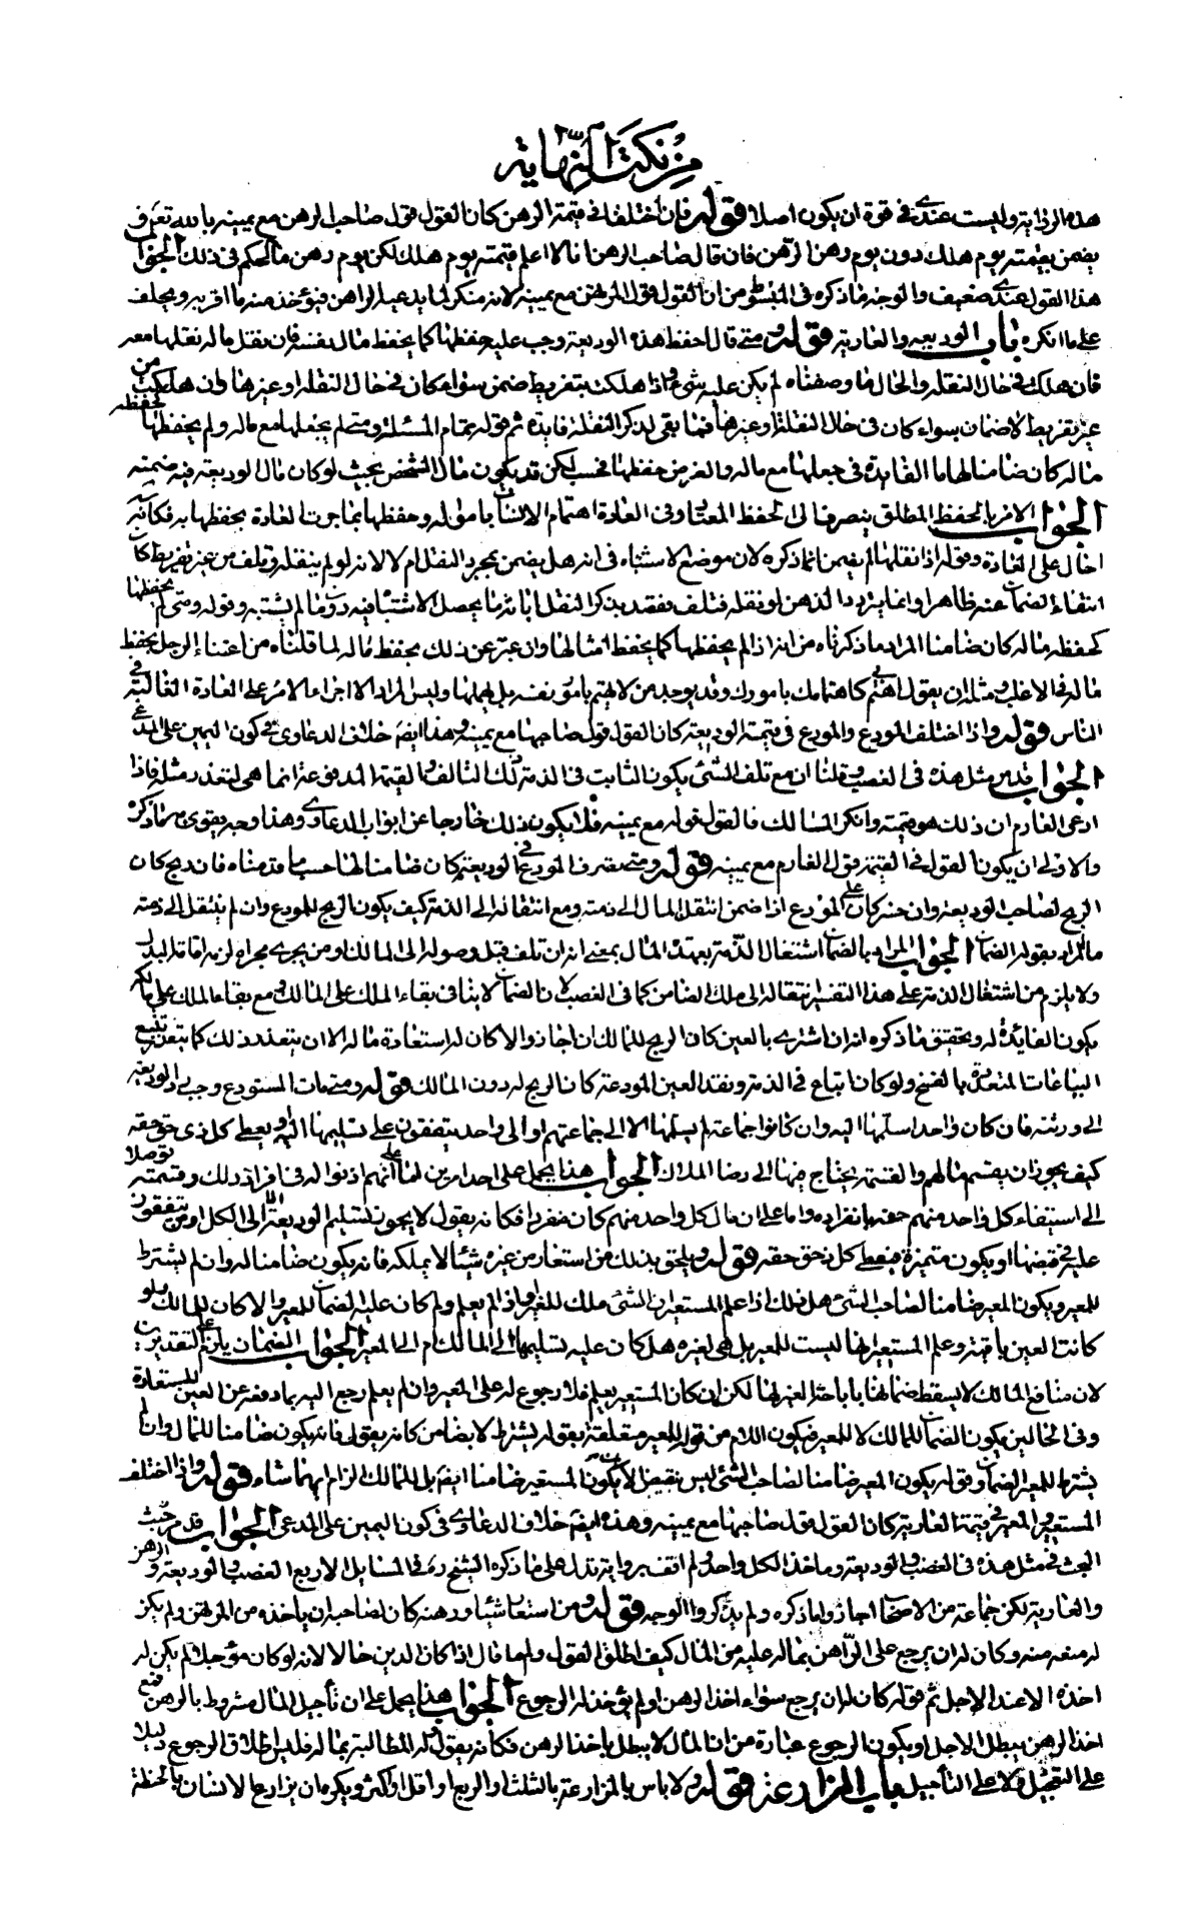 من نكت النهاية
هذه الرواية وليست عندي في قوة ان يكون اصلا قوله فان اختلفا في قيمة الرهن كان القول قول صاحب الرهن مع يمينه بالله تعم وَ
يضمن بقيمته يوم هلك دون يوم رهن الرهن فان قال صاحب الرهن انا لا اعلم قيمته يوم هلك لكن يوم رهن ما الحكم في ذلك الجواب
هذا القول عندي ضعيف والوجه ما ذكره في المبسوط من ان القول قول المرتهن مع يمينه لانه منكر لما يدعيه الراهن فيؤخذ منه ما اقر به ويحلف
على ما انكره باب الوديعه والعارية قوله ومتى قال احفظ هذه الوديعة وجب عليه حفظها كما يحفظ مال نفسه فان نقل ماله نقلها معه
فان هلك في حال النقله والحال ما وصفناه لم يكن عليه شئ واذا هلكت بتفريط ضمن سواء كان في حال النقله او غيرها وان هلكت من
غير تفريط لا ضمان سواء كان في حال النقلة او غيرها فما بقي لذكر النقلة فايدة ثم قوله بتمام المسئلة ومتى لم يجعلها مع ماله ولم يحفظها كحفظه
ماله كان ضامنا لها ما الفايدة في جعلها مع ماله والغرض حفظها فحسب لكن قد يكون مال الشخص بحيث لو كان مال الوديعة فيه ضيعته
الجواب الامر بالحفظ المطلق ينصرف الى الحفظ المعتاد وفي العادة اهتمام الانسان بامواله وحفظها بما جرت العادة بحفظها به فكانه
احال على العادة وقوله اذا نقلها لم يضمن انما ذكره لان موضع الاشتباه في انه هل يضمن بمجرد النقل ام لا لانه لو لم ينقله وتلف من غير تفريط كان
انتفاء الضمان عنه ظاهرا وانما يتردد الذهن لو نقله فتلف فقصد بذكر النقل ابانة ما يحصل الاشتباه فيه دون ما لم يشتبه وقوله ومتى لم يحفظها
كحفظه ماله كان ضامنا المراد ما ذكرناه من انه اذا لم يحفظها كما يحفظ امثالها وان عبر عن ذلك بحفظ ماله لما قلناه من اعتناء الرجل بحفظ
ماله في الاغلب ومثله ان يقول اهتم بي كاهتمامك بامورك وقد يوجد من لا يهتم بامور نفسه بل يهملها وليس المراد الا اجراء الامر على العادة الغالبة في
الناس قوله واذا اختلف المودع والمودع في قيمة الوديعة كان القول قول صاحبها مع يمينه وهذا ايضَ خلاف الدعاوى في كون اليمين على المدعي
الجواب قد مر مثل هذه في الغصب وقلنا ان مع تلف الشئ يكون الثابت في الذمة ذلك التالف والقيمة المدفوعة انما هي لتعذر مثل فاذا
ادعى الغارم ان ذلك هو قيمته وانكر المالك فالقول قوله مع يمينه فلا يكون ذلك خارجا عن ابواب الدعاوى وهذا وجه يقوي ما ذكره
والاولى ان يكون القول في القيمة قول الغارم مع يمينه قوله ومتى تصرف المودع في الوديعة كان ضامنا لها حسب ما قدمناه فان ربح كان
الربح لصاحب الوديعة وان خسر كان على المودع اذا ضمن انتقل المال الى ذمته ومع انتقاله الى الذمة كيف يكون الربح للمودع وان لم ينتقل الى ذمته
ما المراد بقوله الضمان الجواب المراد بالضمان اشتغال الذمة بعهدة المال بمعنى انه ان تلف قبل وصوله الى المالك او من يجري مجراه لزمه اقامة البدل
ولا يلزم من اشتغال الذمة على هذا التفسير انتقاله الى ملك الضامن كما في الغصب لان الضمان لا ينافي بقاء الملك على المالك ومع بقاء الملك على مالكه
يكون الفائدة له وتحقيق ما ذكره انه ان اشترى بالعين كان الربح للمالك ان اجاز والا كان له استعادة ماله الا ان يتعذر ذلك كما يتعذر تتبع
البياعات المتعددة بالفسخ ولو كان ابتاع في الذمة ونقد العين المودعة كان الربح له دون المالك قوله ومتى مات المستودع وجب رد الوديعة
الى ورثته فان كان واحدا سلمها اليه وان كانوا جماعة لم يسلمها الا الى جماعتهم او الى واحد يتفقون على تسليمها اليه او يعطى كل ذي حق حقه
كيف يجوز ان يقسم مالهم والقسمة يحتاج فيها الى رضا الملاك الجواب هذا يحمل على احد امرين اما على انهم اذنوا له في افراز ذلك وقسمته توصلا
الى استيفاء كل واحد منهم حقه بانفراده واما على ان مال كل واحد منهم كان مفردا فكانه يقول لا يجوز تسليم الوديعة الا الى الكل او من يتفقون
على قبضها او يكون متميزة فيعطى كل ذي حق حقه قوله ويلحق بذلك من استعار من غيره شيئا لا يملكه فانه يكون ضامنا له وان لم يشترط
للمعير ويكون المعير ضامنا لصاحب الشئ هل ذلك اذا علم المستعير ان الشئ ملك للغير او اذا لم يعلم ولم كان عليه الضمان للمعير والا كان للمالك ولو
كانت العين باقية وعلم المستعير انها ليست للمعير بل هي لغيره هل كان عليه تسليمها الى المالك ام الى المعير الجواب الضمان يلزم على التقديرين
لان منافع المالك لا يسقط ضمانها باباحة الغير لها لكن ان كان المستعير يعلم فلا رجوع له على المعير وان لم يعلم رجع اليه بما دفعه عن العين المستعادة
وفي الحالين يكون الضمان للمالك لا للمعير فيكون اللام من قوله للمعير متعلقة بقوله يشترط لا بضامن كانه يقول فانه يكون ضامنا للمال وان لم
يشترط للمعير الضمان وقوله يكون المعير ضامنا لصاحب الشئ ليس بنقيض لان يكون المستعير ضامنا ايضَ بل للمالك الزام ايهما شاء قوله واذا اختلف
المستعير والمعير في قيمة العارية كان القول قول صاحبها مع يمينه وهذه ايضَ خلاف الدعاوى في كون اليمين على المدعي الجواب قد مر البحث
في مثل هذه في الغصب والوديعة وماخذ الكل واحد ولم اقف برواية تدل على ما ذكره الشيخ ره في المسايل الاربع الغصب والوديعة والرهن
والعارية لكن جماعة من الاصحاب اجازوا ما ذكره ولم يذكروا الوجه قوله ومن استعار شيئا ورهنه كان لصاحبه ان ياخذه من المرتهن ولم يكن
له منعه منه وكان له ان يرجع على الراهن بماله عليه من المال كيف اطلق القول ولم ما قال اذا كان الدين حالا لانه لو كان مؤجلا لم يكن له
اخذه الا عند الاجل ثم قوله كان له ان يرجع سواء اخذ الرهن او لم يؤخذ له الرجوع الجواب هذا يحمل على ان تاجيل المال مشروط بالرهن فمع
اخذ الرهن يبطل الاجل او يكون الرجوع عبارة من ان المال لا يبطل باخذ الرهن فكانه يقول وله المطالبة بماله فليس اطلاق الرجوع دليلا
على التعجيل ولا على التاجيل باب المزارعة قوله ولا باس بالمزارعة بالثلث او الربع او اقل او اكثر ويكره ان يزارع الانسان بالحنطة